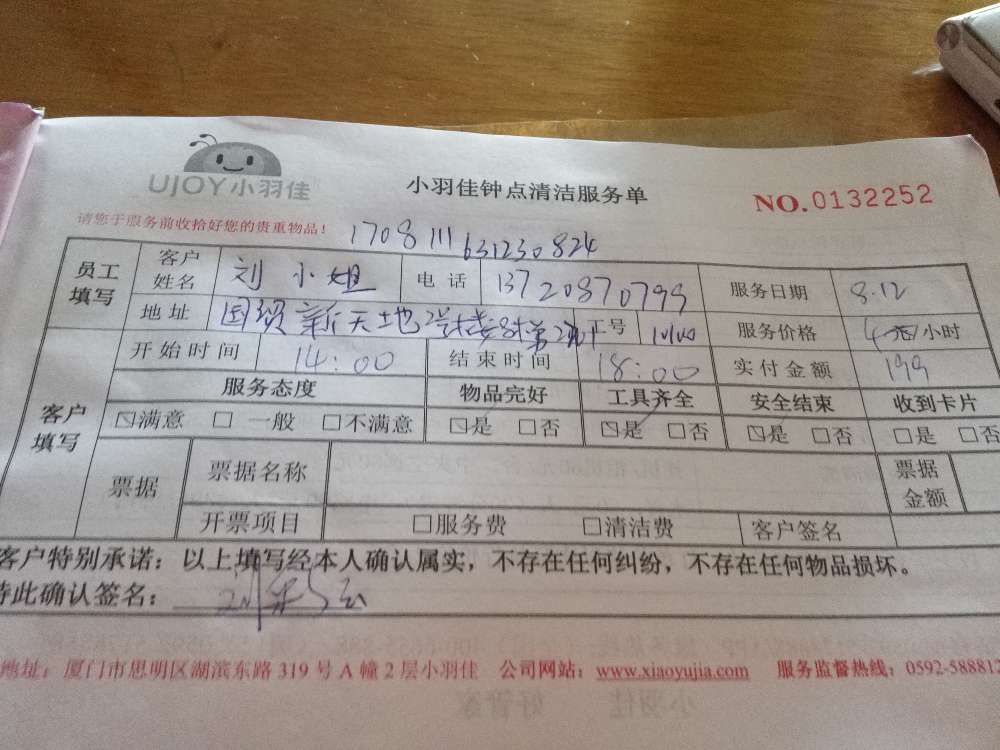 UJOY小羽佳
小羽佳钟点清洁服务单
NO.0132252
请您于服务前收拾好您的贵重物品！
1708111631230824
员工填写 客户姓名 刘小姐 电话 13720870799 服务日期 8.12
地址 国贸新天地 工号 服务价格 /小时
开始时间 14:00 结束时间 18:00 实付金额 199
客户填写 服务态度 物品完好 工具齐全 安全结束 收到卡片
满意 一般 不满意 是 否 是 否 是 否 是 否
票据 票据名称 票据金额
开票项目 服务费 清洁费 客户签名
客户特别承诺：以上填写经本人确认属实，不存在任何纠纷，不存在任何物品损坏。
特此确认签名：
地址：厦门市思明区湖滨东路319号A幢2层小羽佳 公司网站：www.xiaoyujia.com 服务监督热线：0592-588812